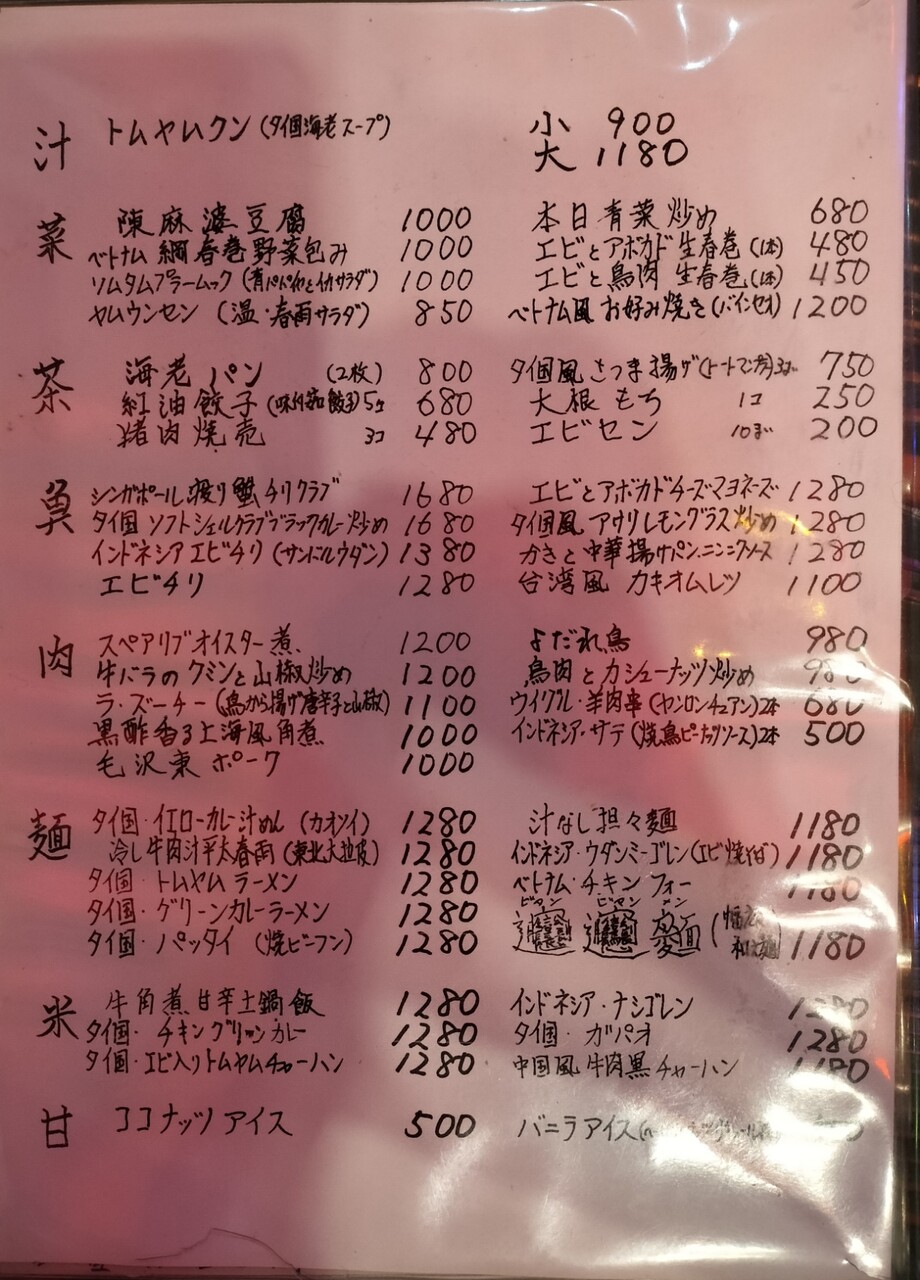 汁 トムヤムクン(タイ国海老スープ) 小 900
大 1180
菜 陳麻婆豆腐 1000 本日青菜炒め 680
ベトナム 網春巻野菜包み 1000 エビとアボカド生春巻(1本) 480
ソムタムプラームック(青パパイヤとイカサラダ) 1000 エビと鳥肉 生春巻(1本) 450
ヤムウンセン (温・春雨サラダ) 850 ベトナム風 お好み焼き(バインセオ) 1200
茶 海老パン (2枚) 800 タイ国風 さつま揚げ 750
紅油餃子 5コ 680 大根もち 1コ 250
猪肉焼売 3コ 480 エビセン 200
魚 シンガポール渡り蟹チリクラブ 1680 エビとアボカドチーズマヨネーズ 1280
タイ国 ソフトシェルクラブブラックカレー炒め 1680 タイ国風 アサリレモングラス炒め 1280
インドネシアエビチリ (サンバルウダン) 1380 かきと中華揚げパンニンニクソース 1280
エビチリ 1280 台湾風 カキオムレツ 1100
肉 スペアリブオイスター煮 1200 よだれ鳥 980
牛バラのクミンと山椒炒め 1200 鳥肉とカシューナッツ炒め 980
ラ・ズーチー(鳥から揚げ唐辛子と山椒) 1100 ウイグル・羊肉串(ヤンロンチュアン)2本 680
黒酢香る上海風角煮 1000 インドネシア・サテ(焼鳥ピーナッツソース)2本 500
毛沢東ポーク 1000
麺 タイ国・イエローカレー汁めん (カオソイ) 1280 汁なし担々麺 1180
冷し牛肉汁平太春雨(東北大拉皮) 1280 インドネシア・ウダンミーゴレン(エビ焼そば) 1180
タイ国・トムヤムラーメン 1280 ベトナム・チキンフォー 1180
タイ国・グリーンカレーラーメン 1280 ビャン ビャン メン
タイ国・パッタイ (焼ビーフン) 1280 𰻞𰻞麺 1180
米 牛角煮甘辛土鍋飯 1280 インドネシア・ナシゴレン 1280
タイ国・チキングリーンカレー 1280 タイ国・ガパオ 1280
タイ国・エビ入りトムヤムチャーハン 1280 中国風牛肉黒チャーハン 1180
甘 ココナッツアイス 500 バニラアイス